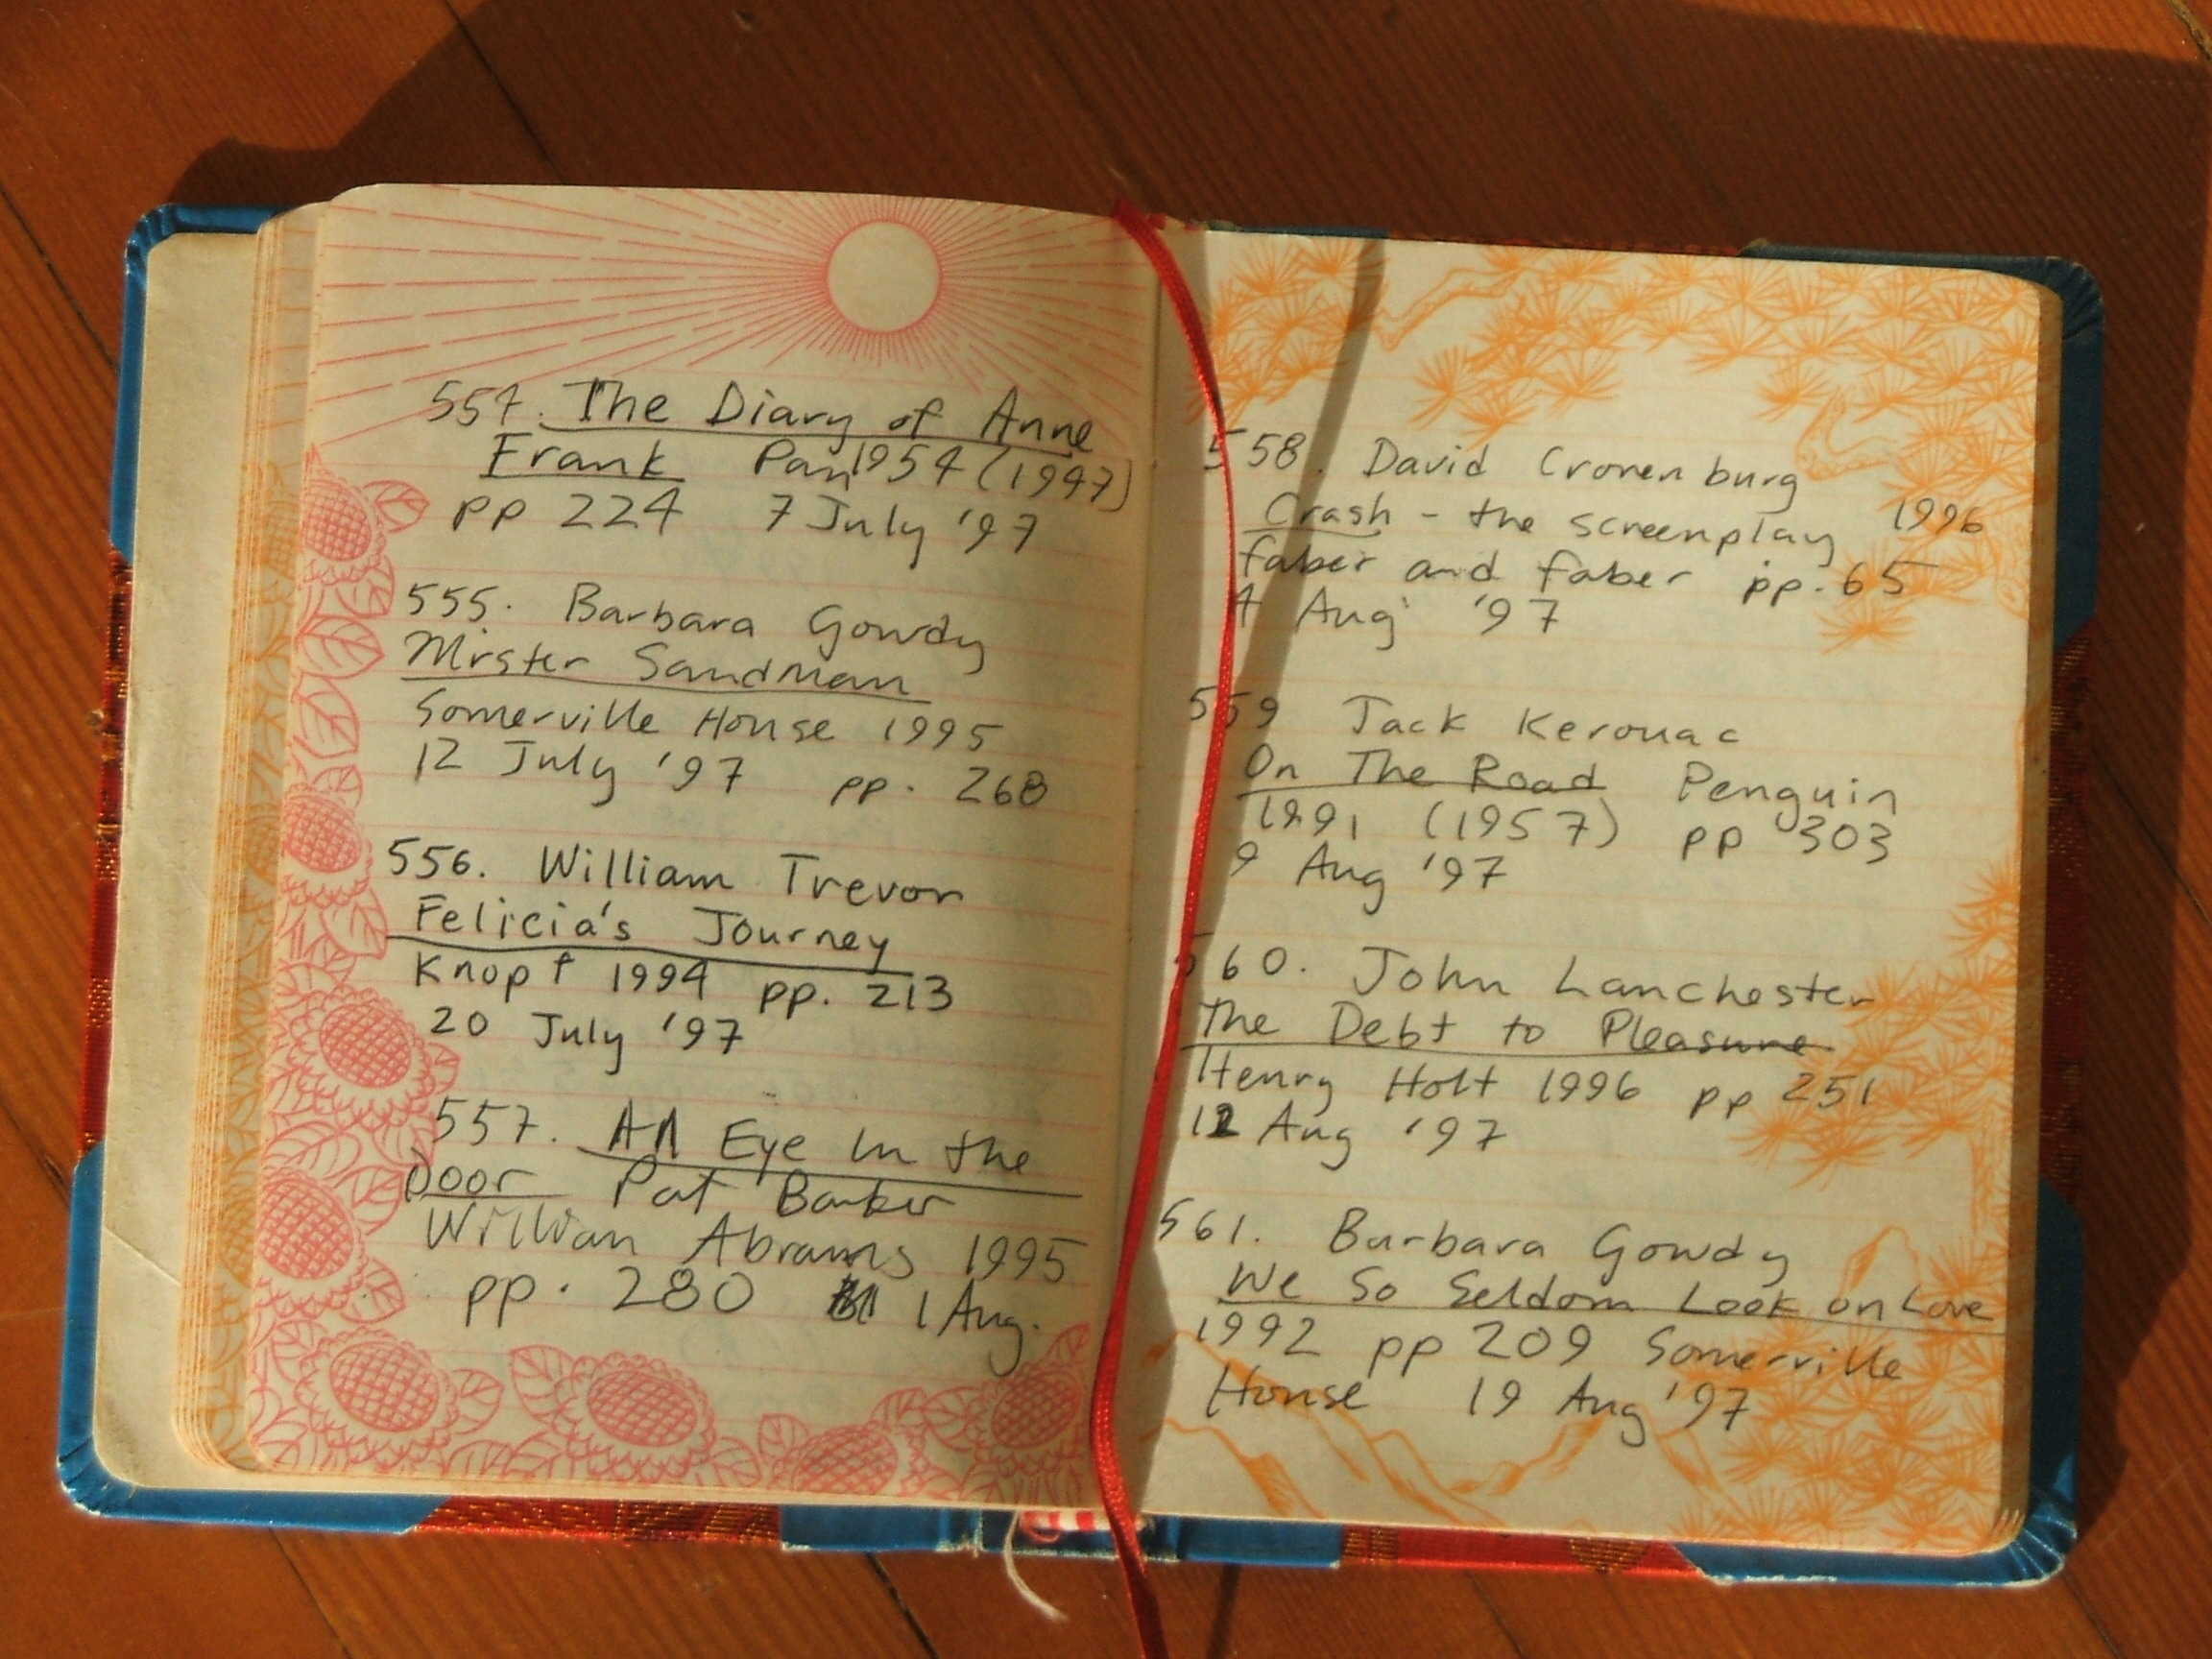 554. The Diary of Anne
Frank Pan 1954 (1947)
pp 224 7 July '97
555. Barbara Gowdy
Mister Sandman
Somerville House 1995
12 July '97 pp. 268
556. William Trevor
Felicia's Journey
Knopf 1994 pp. 213
20 July '97
557. An Eye In the
Door Pat Barker
William Abrams 1995
pp. 280 1 Aug.
558. David Cronenburg
Crash - the screenplay 1996
faber and faber pp. 65
4 Aug '97
559 Jack Kerouac
On The Road Penguin
1991 (1957) pp 303
9 Aug '97
560. John Lanchester
The Debt to Pleasure
Henry Holt 1996 pp 251
12 Aug '97
561. Barbara Gowdy
We So Seldom Look on Love
1992 pp 209 Somerville
House 19 Aug '97